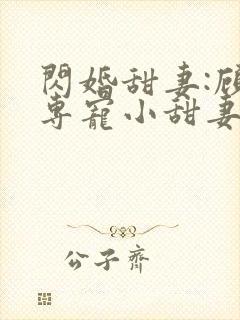 閃婚甜妻:顧
專寵小甜妻
公子齊